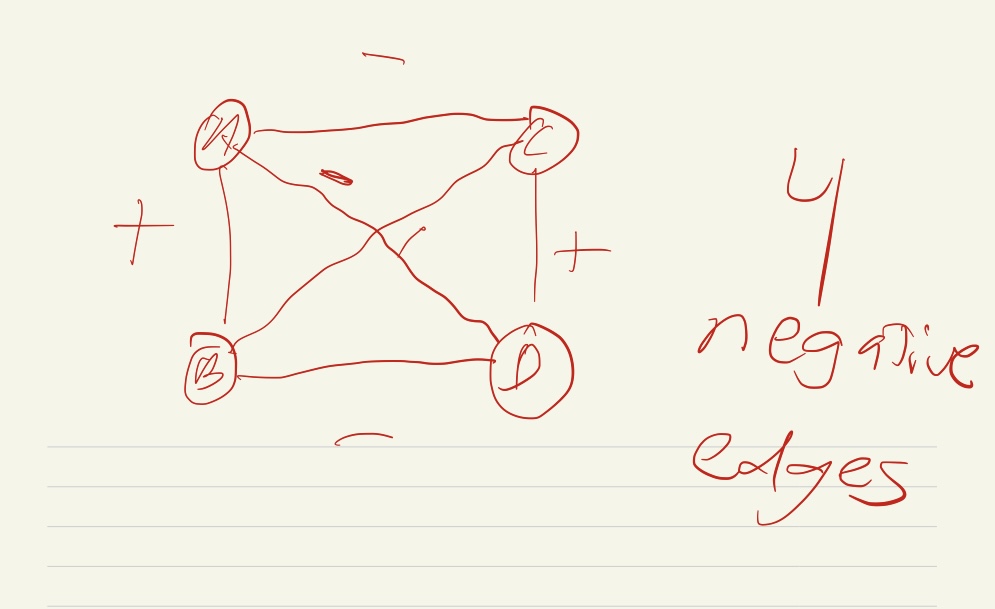 −
A C
−
+ +
4
B D
negative
−
edges